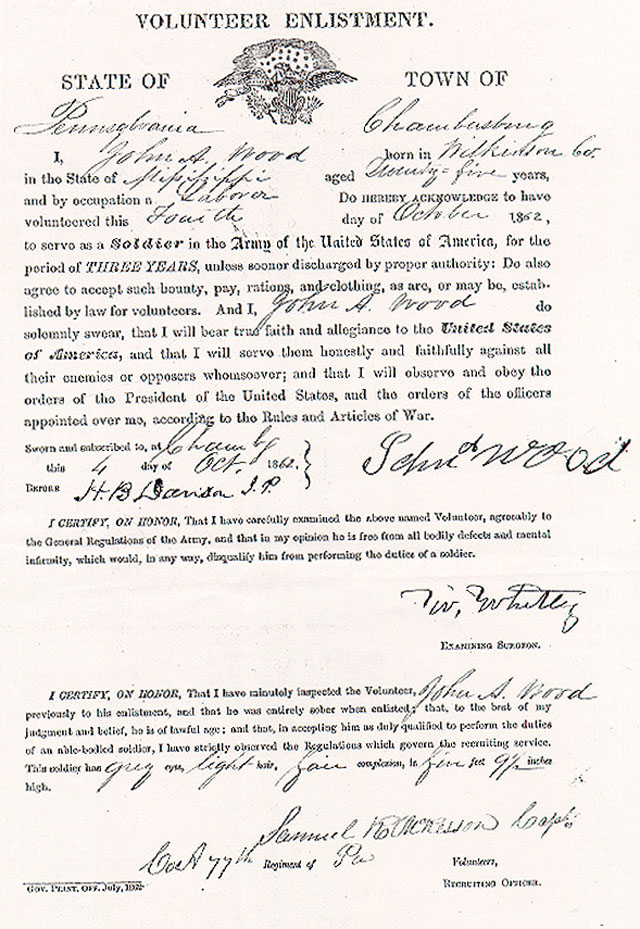 VOLUNTEER ENLISTMENT.
STATE OF TOWN OF
Pennsylvania Chambersburg
I, John A. Wood born in Wilkinson Co.
in the State of Missizzippi aged Twenty=five years,
and by occupation a Laborer Do HEREBY ACKNOWLEDGE to have
volunteered this Fourth day of October 1862,
to serve as a Soldier in the Army of the United States of America, for the
period of THREE YEARS, unless sooner discharged by proper authority: Do also
agree to accept such bounty, pay, rations, and clothing, as are, or may be, estab-
lished by law for volunteers. And I, John A. Wood do
solemnly swear, that I will bear true faith and allegiance to the United States
of America, and that I will serve them honestly and faithfully against all
their enemies or opposers whomsoever; and that I will observe and obey the
orders of the President of the United States, and the orders of the officers
appointed over me, according to the Rules and Articles of War.
Sworn and subscribed to, at Chambg
this 4 day of Oct. 1862.
John A Wood
BEFORE H. B. Davison J. P.
I CERTIFY, ON HONOR, That I have carefully examined the above named Volunteer, agreeably to
the General Regulations of the Army, and that in my opinion he is free from all bodily defects and mental
infirmity, which would, in any way, disqualify him from performing the duties of a soldier.
EXAMINING SURGEON.
I CERTIFY, ON HONOR, That I have minutely inspected the Volunteer, John A. Wood
previously to his enlistment, and that he was entirely sober when enlisted; that, to the best of my
judgment and belief, he is of lawful age; and that, in accepting him as duly qualified to perform the duties
of an able-bodied soldier, I have strictly observed the Regulations which govern the recruiting service.
This soldier has grey eyes, light hair, fair complexion, is five feet 9½ inches
high.
Samuel Capt.
Co A 77th Regiment of Pa Volunteers,
RECRUITING OFFICER.
GOV. PRINT. OFF. July,